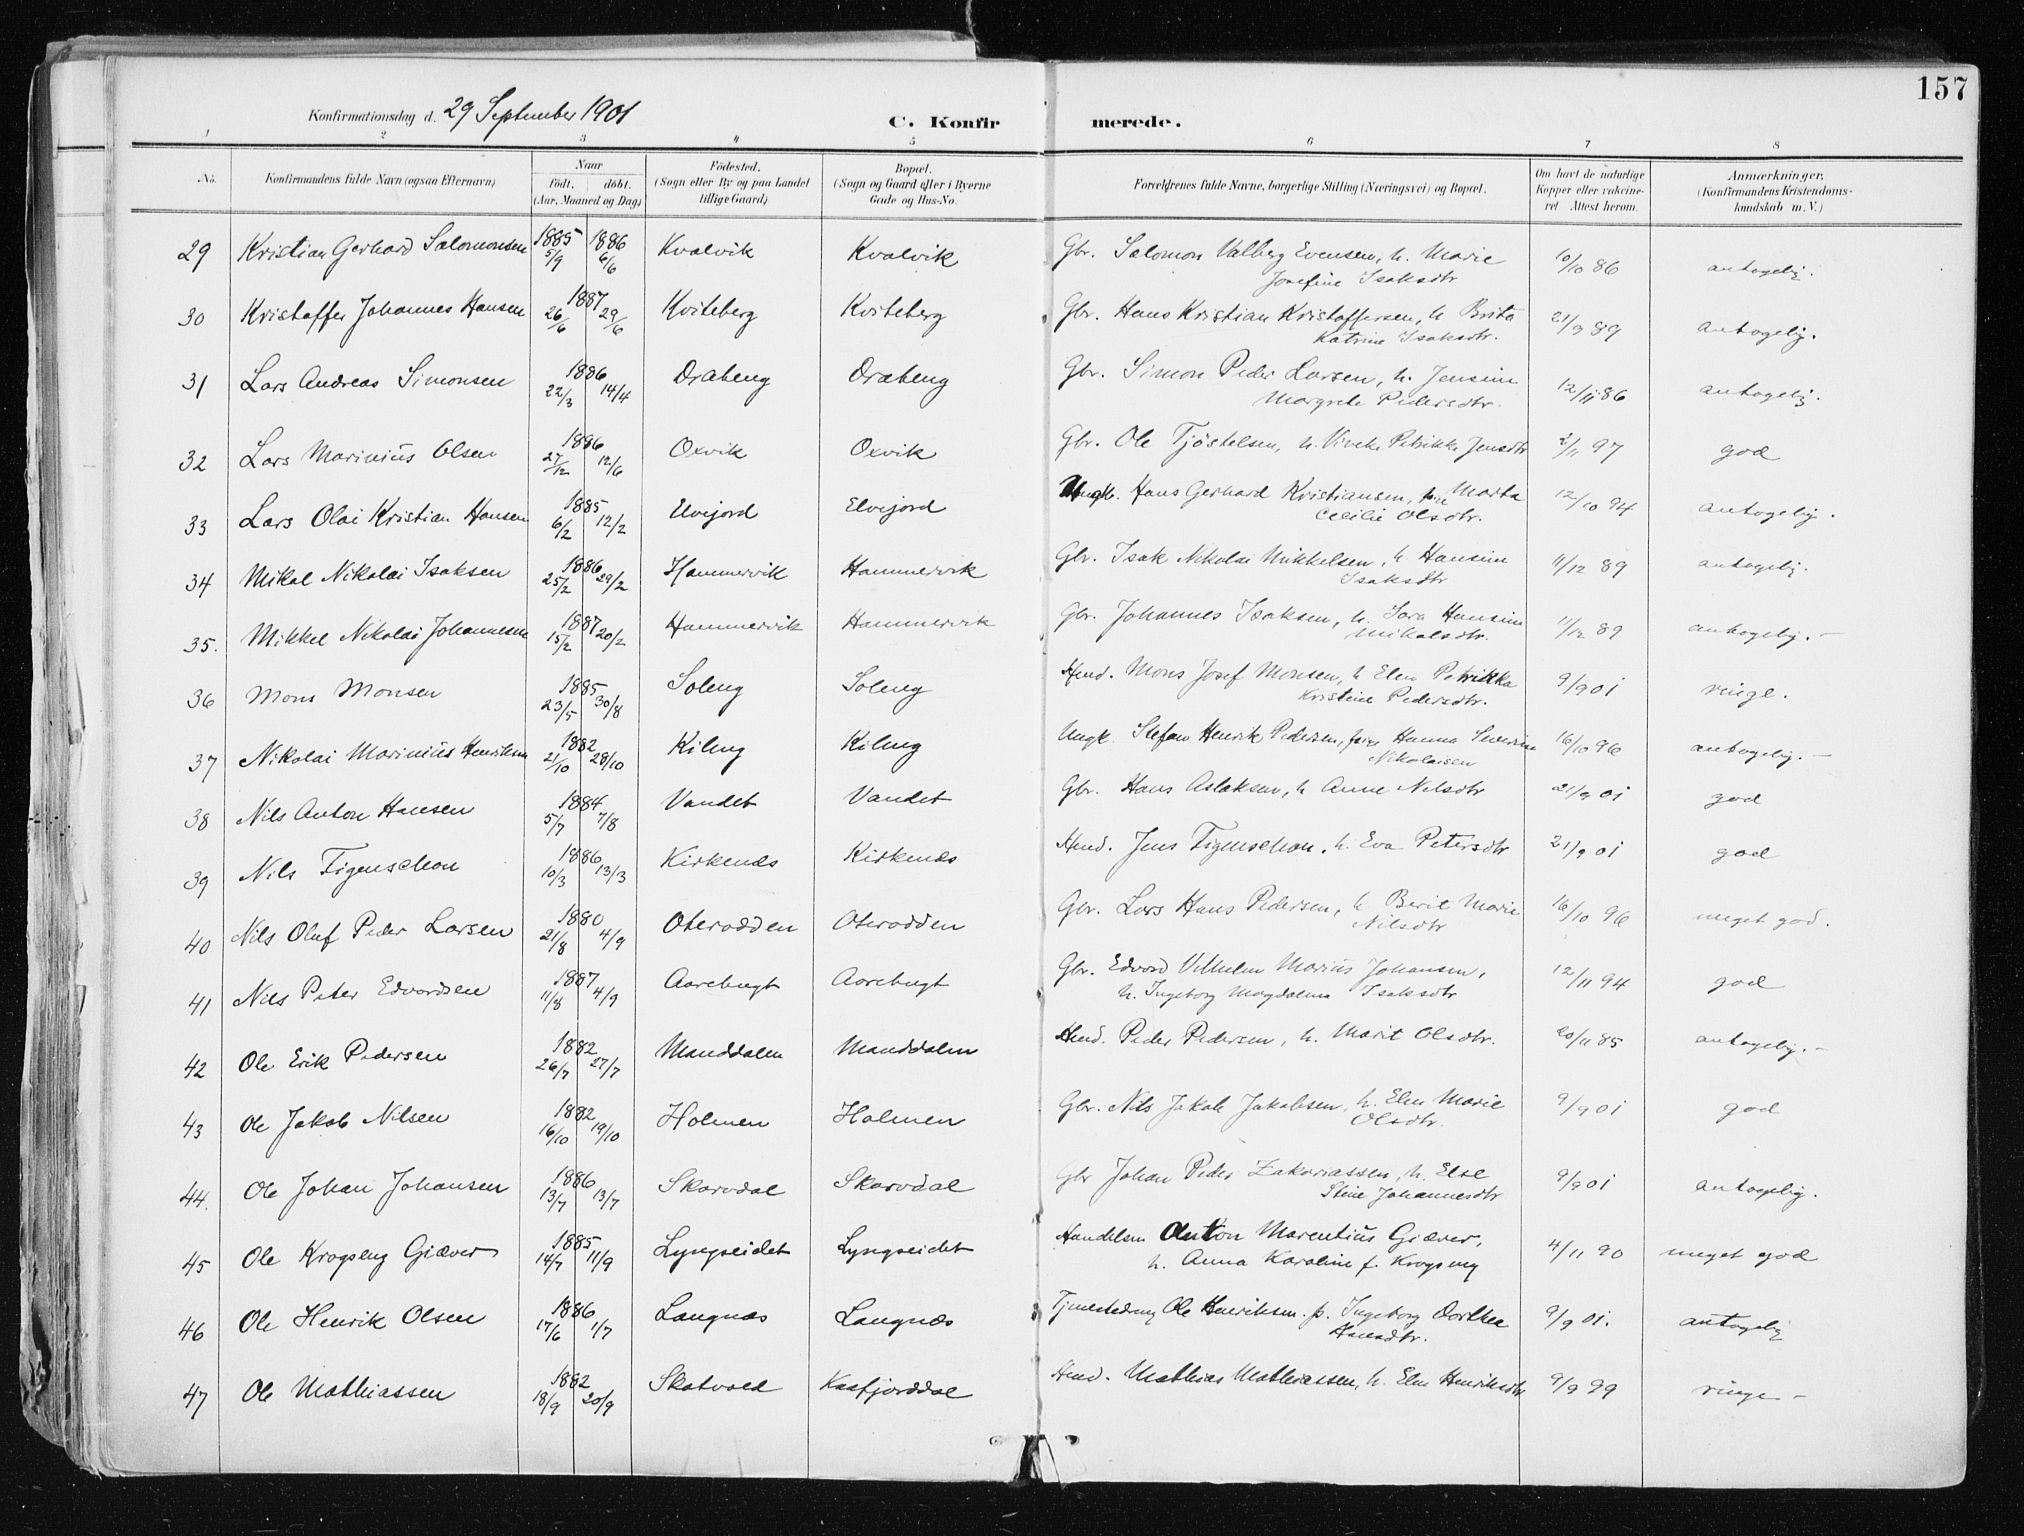 157
Konfirmationsdag d. 29 September 1901
C. Konfirmerede.
1 2 3 4 5 6 7 8
No. | Konfirmandens fulde Navn (ogsaa Efternavn) | Naar født. døbt. (Aar, Maaned og Dag) | Fødested. (Sogn eller By og paa Landet tillige Gaard) | Bopæl. (Sogn og Gaard eller i Byerne Gade og Hus-No. | Forældrenes fulde Navne, borgerlige Stilling (Næringsvei) og Bopæl. | Om havt de naturlige Kopper eller vakcineret Attest herom. | Anmærkninger. (Konfirmandens Kristendomskundskab m. V.)
29 Kristian Gerhard Salomonsen 1885 5/9 1886 6/6 Kvalvik Kvalvik Gbr. Salomon Valberg Evensen, h. Marie Josefine Isaksdtr 10/10 86 antagelig.
30 Kristoffer Johannes Hansen 1887 26/6 29/6 Kviteberg Kviteberg Gbr. Hans Kristian Kristoffersen, h Brita Katrine Isaksdtr. 21/9 89 antagelig.
31 Lars Andreas Simonsen 1886 22/3 14/4 Drabeng Drabeng Gbr. Simon Peder Larsen, h. Jensine Margrete Pedersdtr. 12/11 86 antagelig.
32 Lars Marinius Olsen 1886 27/12 12/6 Oxvik Oxvik Gbr. Ole Tjöstelsen, h. Viveke Petrikke Jensdtr 2/11 97 god
33 Lars Olai Kristian Hansen 1885 6/2 12/2 Elvejord Elvejord Ungk. Hans Gerhard Kristiansen, Marta Cecilie Olsdtr. 12/10 94 antagelig.
34 Mikal Nikolai Isaksen 1886 25/2 29/2 Hammervik Hammervik Gbr. Isak Nikolai Mikkelsen, h. Hansine Isaksdtr 11/12 89 antagelig.
35. Mikkel Nikolai Johannesen 1887 15/2 20/2 Hammervik Hammervik Gbr. Johannes Isaksen, h. Sara Hansine Mikalsdtr. 11/12 89 antagelig. -
36 Mons Monsen 1885 23/5 30/8 Soleng Soleng Hmd. Mons Josef Monsen, h Elen Petrikka Kristine Pedersdtr. 9/9 01 ringe.
37 Nikolai Marinius Henriksen 1882 21/10 28/10 Kileng Kileng Ungk. Stefan Henrik Pedersen, Hanna Severine Nikolaisen 16/10 96 antagelig. -
38 Nils Anton Hansen 1884 5/7 7/8 Vandet Vandet Gbr. Hans Aslaksen, h Anne Nilsdtr 21/9 01 god
39 Nils Figenschou 1886 10/3 13/3 Kirkenæs Kirkenæs Hmd. Jens Figenschou, h. Eva Petersdtr 21/9 01 god
40 Nils Oluf Peder Larsen 1880 21/8 4/9 Oterodden Oterodden Gbr. Lars Hans Pedersen, h Berit Marie Nilsdtr 16/10 96 meget god.
41 Nils Peter Edvardsen 1887 11/8 4/9 Aarebugt Aarebugt Gbr. Edvard Vilhelm Marius Johansen, h. Ingeborg Magdalena Isaksdtr 12/11 94 god
42 Ole Erik Pedersen 1882 26/7 27/7 Manddalen Manddalen Hmd. Peder Pedersen, h. Marit Olsdtr. 20/11 85 antagelig. -
43 Ole Jakob Nilsen 1882 16/10 19/10 Holmen Holmen Gbr. Nils Jakob Jakobsen, h. Elen Marie Olsdtr. 9/9 01 god
44. Ole Johan Johansen 1886 13/7 13/7 Skarvdal Skarvdal Gbr Johan Peder Zakariassen, h. Else Stine Johannesdtr 9/9 01 antagelig.
45 Ole Krogseng Giæver 1885 14/7 11/9 Lyngseidet Lyngseidet Handelsm Anton Marentius Giæver, h. Anna Karoline f. Krogseng 4/11 90 meget god
46 Ole Henrik Olsen 1886 17/6 1/7 Langnæs Langnæs Tjenestedreng Ole Henriksen. p. Ingeborg Dorthea Hansdtr. 9/9 01. antagelig
47 Ole Mathiassen 1882 18/9 20/9 Skatvold Kaafjorddal Hmd. Mathias Mathiassen, h. Elen Henriksdtr 9/9 99 ringe -